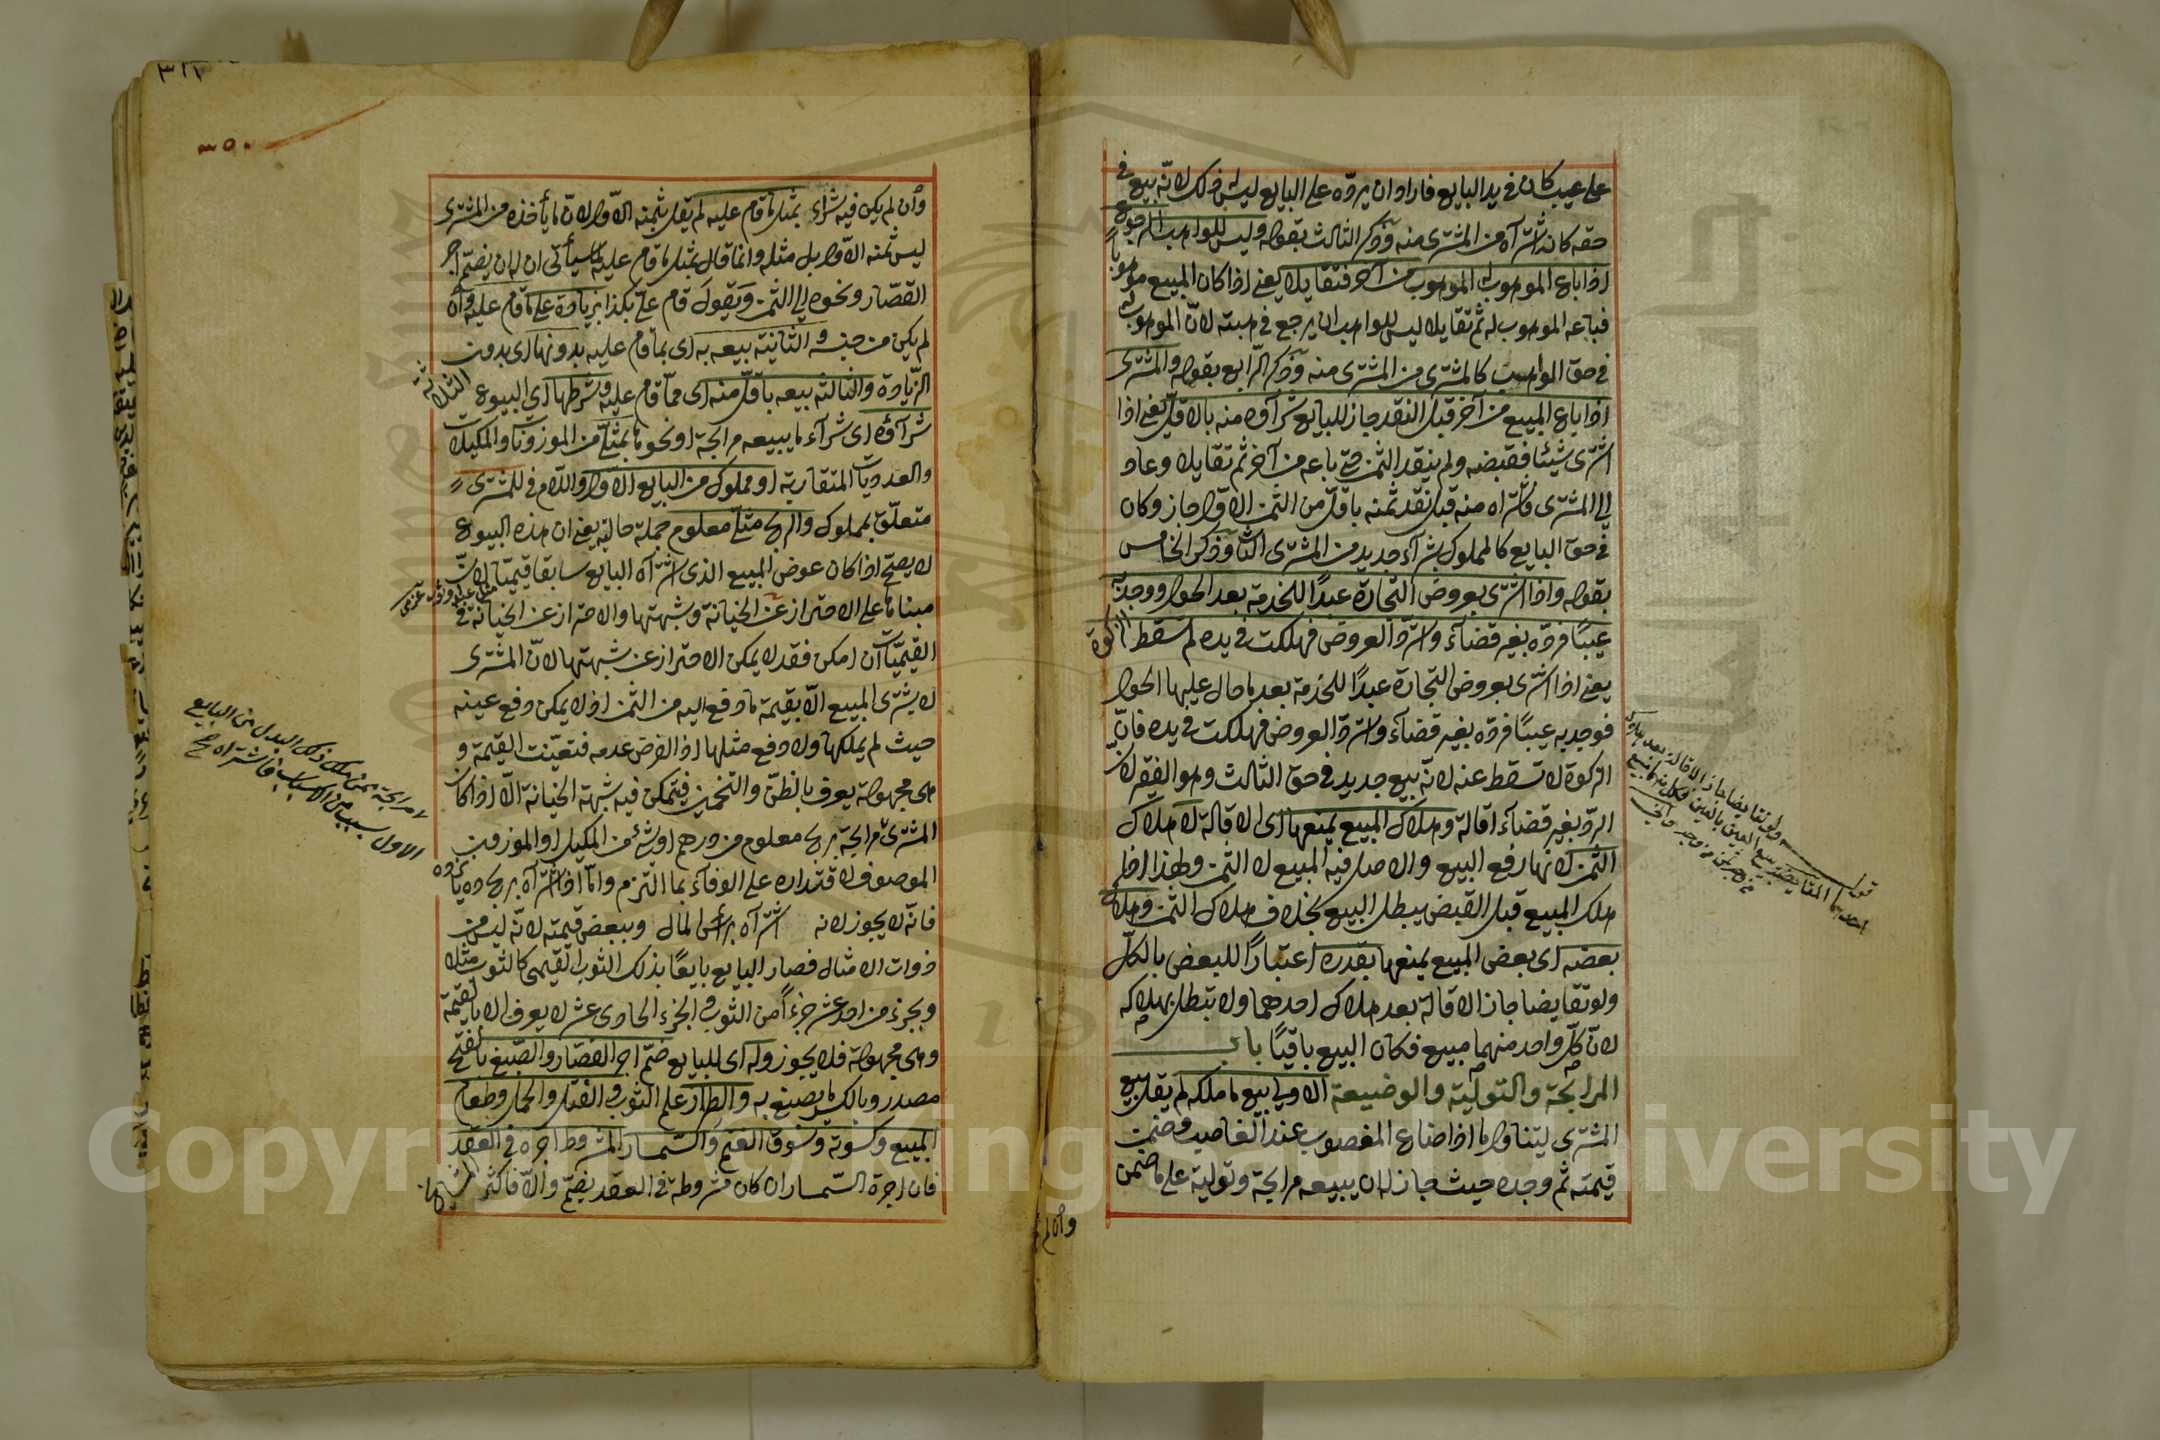 على عيب كان في يد البايع فاراد ان يرده على البايع ليس له ذلك لانه بيع في
حقه كانه اشتراه من المشترى منه وذكر الثالث بقوله وليس للواهب الرجوع
اذا باع الموهوب له الموهوب من آخر فتقايلا يعنى اذا كان المبيع موهوبا
فباعه الموهوب له ثم تقايلا ليس للواهب ان يرجع في هبته لان الموهوب له
في حق الواهب كالمشترى من المشترى منه وذكر الرابع بقوله والمشترى
اذا باع المبيع من آخر قبل النقد جاز للبايع شراؤه منه بالاقل يعنى اذا
اشترى شيئا فقبضه ولم ينقد الثمن حتى باعه من آخر ثم تقايلا وعاد
الى المشترى فاشتراه منه قبل نقد ثمنه باقل من الثمن الاول جاز وكان
في حق البايع كالمملوك بشراء جديد من المشترى الثانى وذكر الخامس
بقوله واذا اشترى بعروض التجارة عبدًا للخدمة بعد الحول ووجد به
عيبًا فرده بغير قضاء واسترد العروض فهلكت في يده لم تسقط الزكوة
يعنى اذا اشترى بعروض التجارة عبدًا للخدمة بعد ما حال عليها الحول
فوجد به عيبًا فرده بغير قضاء واسترد العروض فهلكت في يده فان
الزكوة لا تسقط عنه لانه بيع جديد في حق الثالث وهو الفقير لان
الرد بغير قضاء اقالة وهلاك المبيع يمنعها اى الاقالة لا هلاك
الثمن لانها رفع البيع والاصل فيه المبيع لا الثمن ولهذا اذا
هلك المبيع قبل القبض يبطل البيع بخلاف هلاك الثمن وهلاك
بعضه اى بعض المبيع يمنعها بقدره اعتبارًا للبعض بالكل
ولو تقايضا جاز الاقالة بعد هلاك احدهما ولا تبطل بهلاكه
لان كل واحد منهما مبيع فكان البيع باقيًا باب
المرابحة والتولية والوضيعة الاولى بيع ما ملكه لم يقل بيع
المشترى ليتناول ما اذا ضاع المغصوب عند الغاصب وضمن
قيمته ثم وجده حيث جاز له ان يبيعه مرابحة وتولية على ما ضمن
وان لم
قوله ولو تقايضا جاز الاقالة بعد هلاك
احدهما المقايضة بيع العين بالعين فكل منهما مبيع
من وجه وثمن من وجه
٣٥٠
وان لم يكن فيه شراء بمثل ما قام عليه لم يقل بثمنه الاول لان ما يأخذه من المشترى
ليس ثمنه الاول بل مثله وانما قال بمثل ما قام عليه لما سيأتى ان له ان يضم اجر
القصار ونحوه الى الثمن ويقول قام على بكذا بزيادة على ما قام عليه وان
لم يكن من جنسه والثانية بيعه به اى بما قام عليه بدونها اى بدون
الزيادة والثالثة بيعه باقل منه اى مما قام عليه وشرطها اى البيوع الثلاثة
شراؤه اى شراء ما يبيعه مرابحة او نحوها بمثلى من الموزونات والمكيلات
والعدديات المتقاربة او مملوك من البايع الاول واللام في للمشترى
متعلق بمملوك والربح مثلى معلوم جملة حالية يعنى ان هذه البيوع
لا يصح اذا كان عوض المبيع الذى اشتراه البايع سابقا قيميًا لان
مبناها على الاحتراز عن الخيانة وشبهتها والاحتراز عن الخيانة في
القيميات ان امكن فقد لا يمكن الاحتراز عن شبهتها لان المشترى
لا يشترى المبيع الا بقيمة ما دفع اليه من الثمن اذ لا يمكن دفع عينه
حيث لم يملكها ولا دفع مثلها اذ الفرض عدمه فتعينت القيمة و
هى مجهولة يعرف بالظن والتخمين فيتمكن فيه شبهة الخيانة الا اذا كان
المشترى مرابحة بربح معلوم من درهم او شئ من المكيل او الموزون
الموصوف لاقتداره على الوفاء بما التزم واما اذا اشتراه بربح ده يازده
فانه لا يجوز لانه اشتراه برأس المال وببعض قيمته لانه ليس من
ذوات الامثال فصار البايع بايعًا بذلك الثوب القيمى كالثوب مثلا
وبجزء من احد عشر جزءًا من الثوب والجزء الحادى عشر لا يعرف الا بالقيمة
وهى مجهولة فلا يجوز وله اى للبايع ضم اجر القصار والصبغ بالفتح
مصدر وبالكسر ما يصبغ به والطراز علم الثوب والفتل والحمل وطعام
المبيع وكسوته وسوق الغنم والسمسار المشروط اجره في العقد
فان اجرة السمسار ان كان مشروطة في العقد يضم والا فاكثر
مرابحة ممن ملك ذلك البدل من البايع
الاول بسبب من الاسباب فاشتراه صح